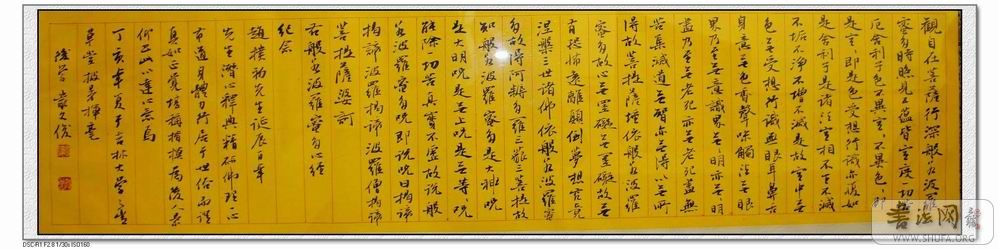 觀自在菩薩行深般若波羅
蜜多時照見五蘊皆空度一切苦
厄舍利子色不異空空不異色色即
是空空即是色受想行識亦復如
是舍利子是諸法空相不生不滅
不垢不淨不增不減是故空中无
色无受想行識无眼耳鼻舌
身意无色香聲味觸法无眼
界乃至无意識界无无明亦无无明
盡乃至无老死亦无老死盡無
苦集滅道无智亦无得以无所
得故菩提薩埵依般若波羅
蜜多故心无罣礙无罣礙故无
有恐怖遠離顛倒夢想究竟
涅槃三世諸佛依般若波羅蜜
多故得阿耨多羅三藐三菩提故
知般若波羅蜜多是大神咒
是大明咒是无上咒是无等等咒
能除一切苦真實不虛故說般
若波羅蜜多咒即說咒曰揭諦
揭諦波羅揭諦波羅僧揭諦
菩提薩婆訶
右般若波羅蜜多心經
紀念
趙樸初先生誕辰百年
先生潛心釋典精研佛理心
身體力行居于世俗而證
真如正覺堪稱楷模為後人景
仰以達心意焉
丁亥年夏于吉林大學
草堂披暑揮毫
DSC-R1 F2.8 1/30s ISO160
書法网
WWW.SHUFA.ORG